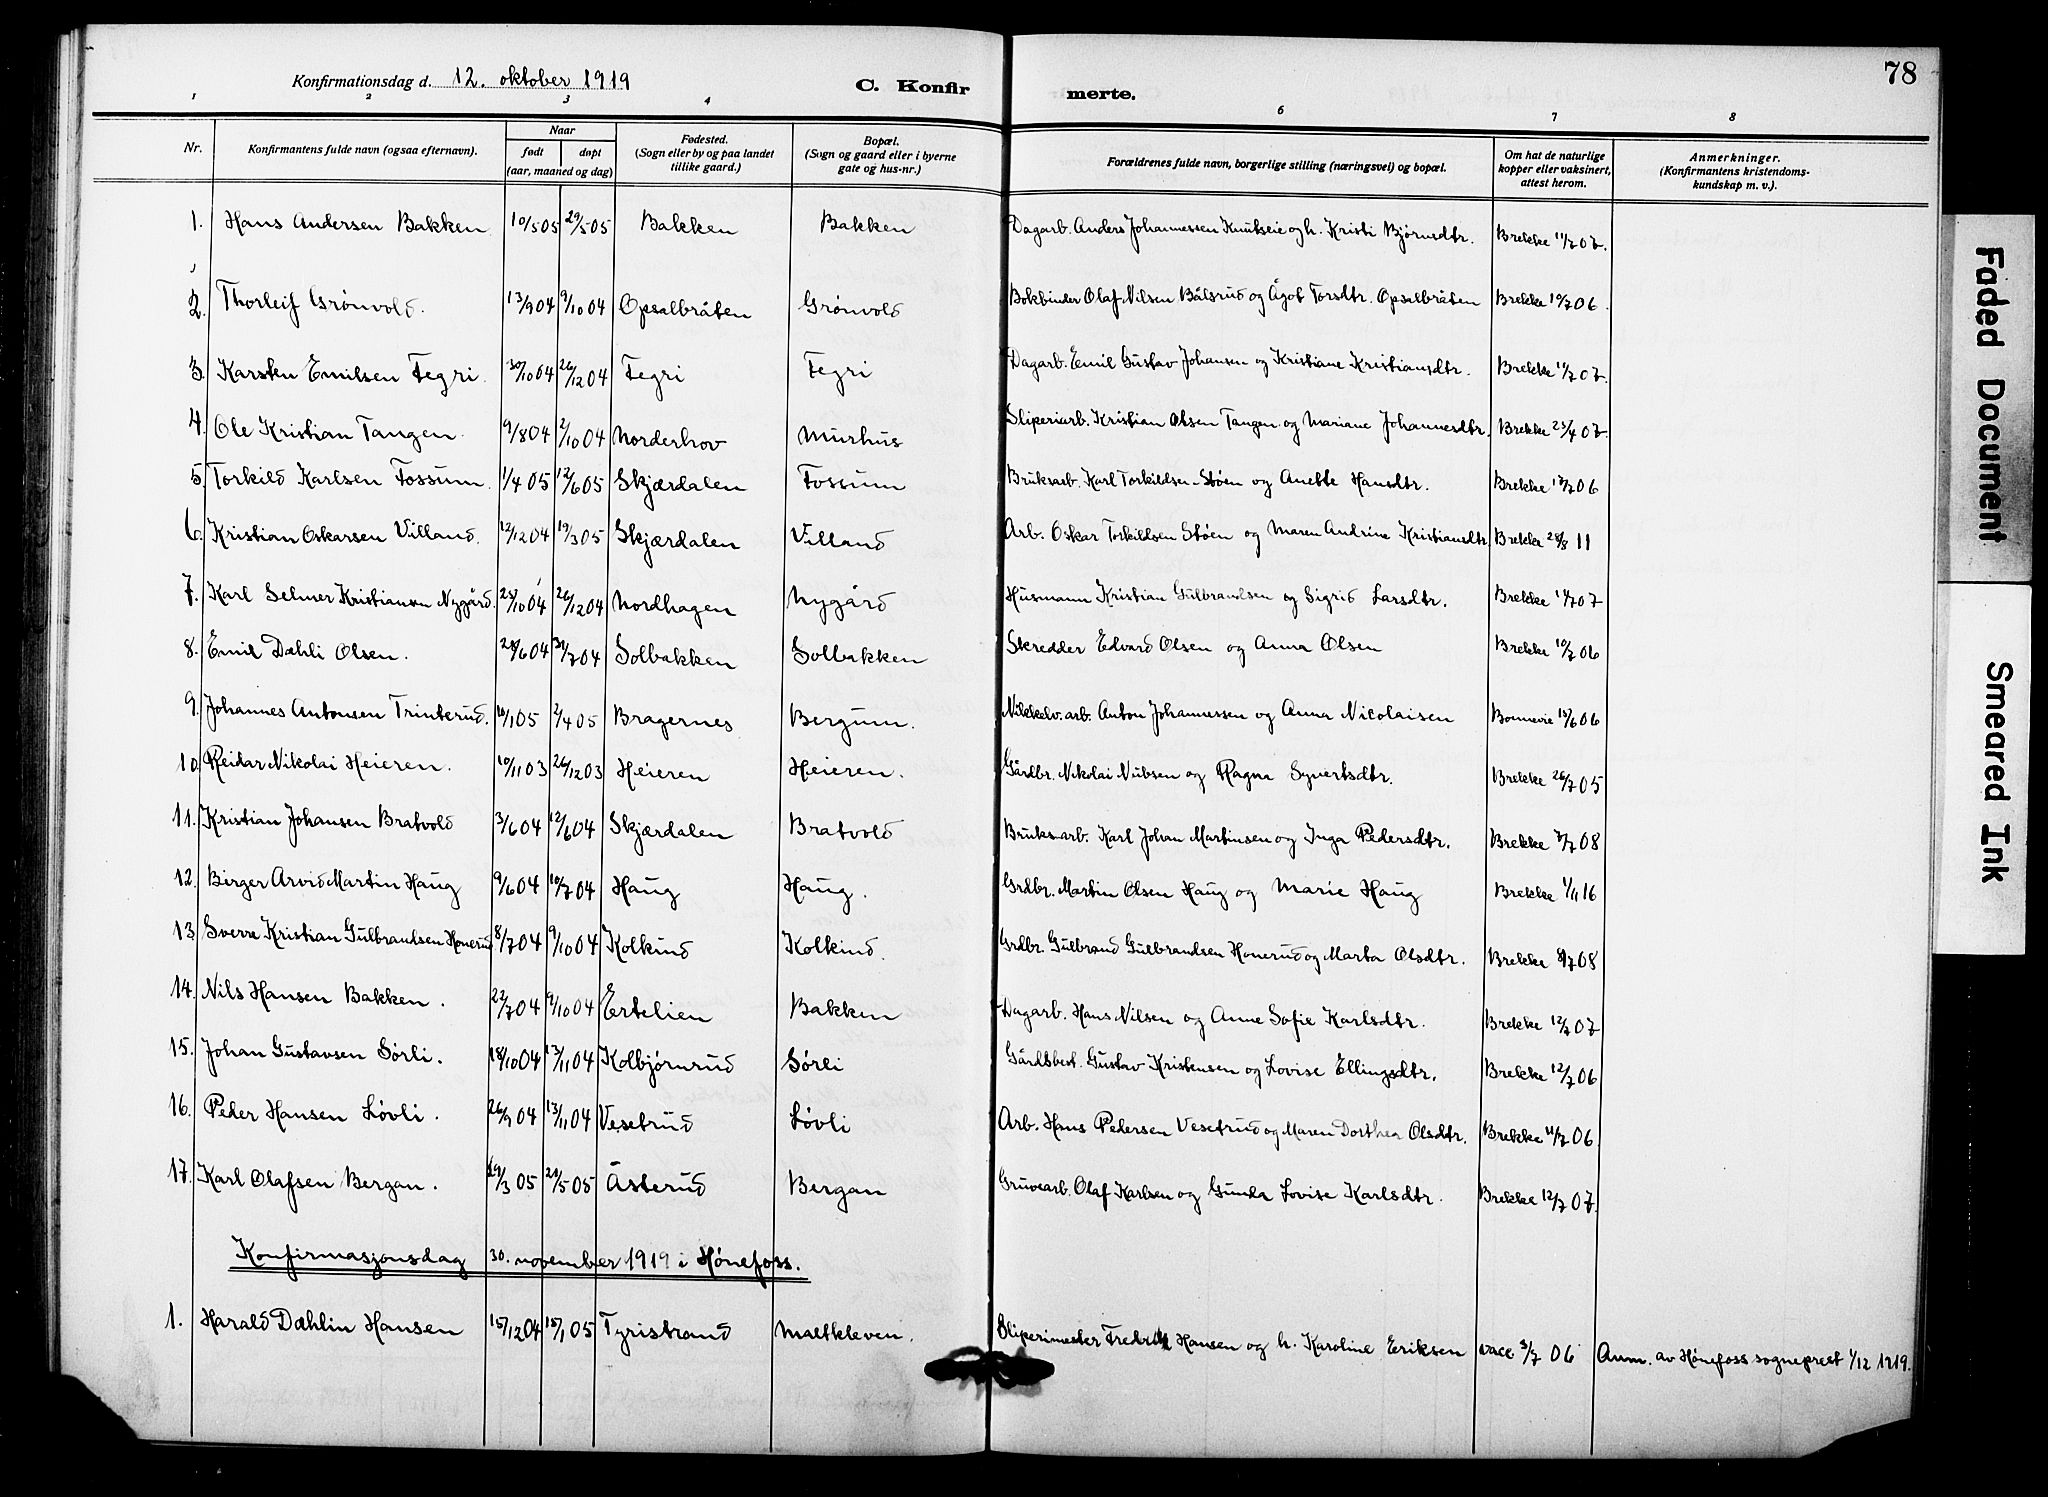 78
Konfirmationsdag d. 12. oktober 1919 C. Konfir merte.
1 2 3 4 6 7 8
Nr. Konfirmantens fulde navn (ogsaa efternavn). Naar født døpt (aar, maaned og dag) Fødested. (Sogn eller by og paa landet tillike gaard.) Bopæl. (Sogn og gaard eller i byerne gate og hus-nr.) Forældrenes fulde navn, borgerlige stilling (næringsvei) og bopæl. Om hat de naturlige kopper eller vaksinert, attest herom. Anmerkninger. (Konfirmantens kristendoms- kundskap m. v.).
1. Hans Andersen Bakken 10/5 05 29/5 05 Bakken Bakken Dagarb. Anders Johannessen Knutseie og h. Kristi Bjørnsdtr. Brekke 11/7 07.
2. Thorleif Grønvold. 13/9 04 9/10 04 Opsalbråten Grønvold Bokbinder Olaf Nilsen Bålsrud og Ågot Torsdtr. Opsalbråten Brekke 10/7 06.
3. Karsten Emilsen Fegri. 30/10 04 26/12 04 Fegri Fegri Dagarb. Emil Gustav Johansen og Kristiane Kristiansdtr. Brekke 11/7 07.
4. Ole Kristian Tangen. 9/8 04 2/10 04 Norderhov Murhus Sliperiarb. Kristian Olsen Tangen og Mariane Johannesdtr. Brekke 23/4 07.
5. Torkild Karlsen Fossum. 1/4 05 12/6 05 Skjærdalen Fossum Bruksarb. Karl Torkildsen Støen og Anette Hansdtr. Brekke 12/7 06
6. Kristian Oskarsen Villand. 12/12 04 19/3 05 Skjærdalen Villand Arb. Oskar Torkildsen Støen og Maren Andrine Kristiansdtr Brekke 28/8 11
7. Karl Selmer Kristiansen Nygård. 25/10 04 26/12 04 Nordhagen Nygård Husmann Kristian Gulbrandsen og Sigrid Larsdtr. Brekke 11/7 07
8. Emil Dæhli Olsen. 28/6 04 31/7 04 Solbakken Solbakken Skredder Edvard Olsen og Anna Olsen Brekke 10/7 06
9. Johannes Antonsen Trinterud. 10/1 05 2/4 05 Bragernes Bergum. Nikkelv. arb. Anton Johannessen og Anna Nicolaisen Bonnevie 15/6 06
10. Reidar Nikolai Heieren. 10/11 03 26/12 03 Heieren Heieren. Gårdbr. Nikolai Nubsen og Ragna Syvertsdtr. Brekke 26/7 05
11. Kristian Johansen Bratvold 3/6 04 12/6 04 Skjærdalen Bratvold Bruksarb. Karl Johan Martinsen og Inga Pedersdtr. Brekke 7/7 08
12. Birger Arvid Martin Haug 9/6 04 10/7 04 Haug Haug. Grdbr. Martin Olsen Haug og Marie Haug Brekke 1/11 16
13. Sverre Kristian Gulbrandsen Honerud 8/7 04 9/10 04 Kolkind Kolkind. Grdbr. Gulbrand Gulbrandsen Honerud og Marta Olsdtr. Brekke 8/7 08
14. Nils Hansen Bakken. 22/7 04 9/10 04 Ertelien Bakken Dagarb. Hans Nilsen og Anne Sofie Karlsdtr. Brekke 12/7 07
15. Johan Gustavsen Sørli. 18/10 04 13/11 04 Kolbjørnrud Sørli Gårdsbest. Gustav Kristensen og Lovise Ellingsdtr. Brekke 12/7 06
16. Peder Hansen Løvli. 26/9 04 13/11 04 Vesetrud Løvli Arb. Hans Pedersen Vesetrud og Maren Dorthea Olsdtr. Brekke 11/7 06.
17. Karl Olafsen Bergan. 19/3 05 28/5 05 Åsterud Bergan Gruvearb. Olaf Karlsen og Gunda Lovise Karlsdtr. Brekke 12/7 07.
Konfirmasjonsdag 30. november 1919 i Hønefoss.
1. Harald Dæhlin Hansen 15/12 04 15/1 05 Tyristrand Maltkleven. Slipermester Fredrik Hansen og h. Karoline Eriksen vacc 3/7 06 Anm. av Hønefoss sogneprest 1/12 1919.
Faded Document
Smeared Ink